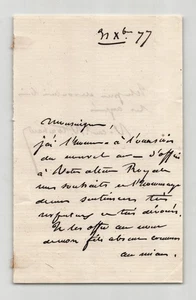 31 Xbre 77
Monseigneur
j'ai l'honneur à l'occasion
du nouvel an d'offrir
à Votre Altesse Royale
mes souhaits et l'hommage
de mes sentiments très
respectueux et très dévoués.
Je les offre au nom
de mon fils absent comme
au mien.